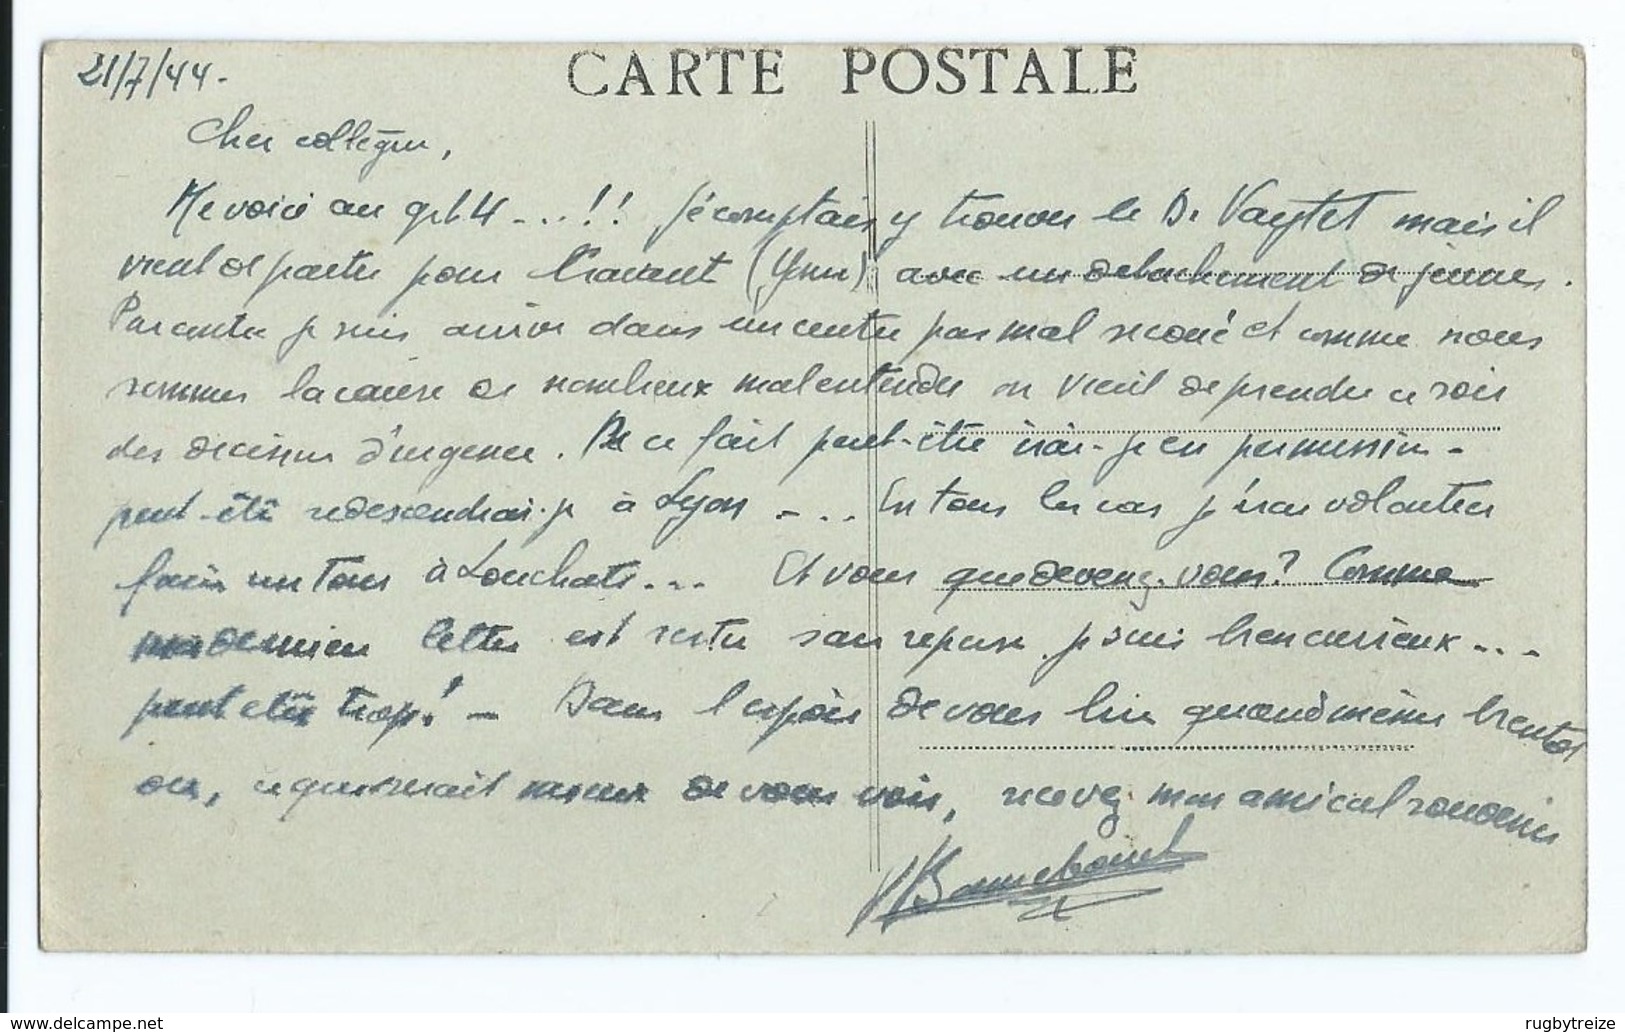 21/7/44.
CARTE POSTALE
Cher collègue,
Me voici au gpt 4 ...!! Je comptais y trouver le Dr Vaytet mais il
vient de partir pour l'avant () avec un détachement de jeunes.
Par contre je suis arrivé dans un centre pas mal secoué et comme nous
sommes la cause de nombreux malentendus on vient de prendre ce soir
des décisions d'urgence. De ce fait peut-être irai-je en permission -
peut-être redescendrai-je à Lyon - ... En tous les cas j'irai volontiers
faire un tour à Louchats ... Et vous que devenez-vous? Comme
ma dernière lettre est restée sans réponse je suis bien curieux ...
peut être trop! - Dans l'espoir de vous lire quand même bientôt
ou, ce qui serait mieux de vous voir, recevez mon amical souvenir
delcampe.net
rugbytreize